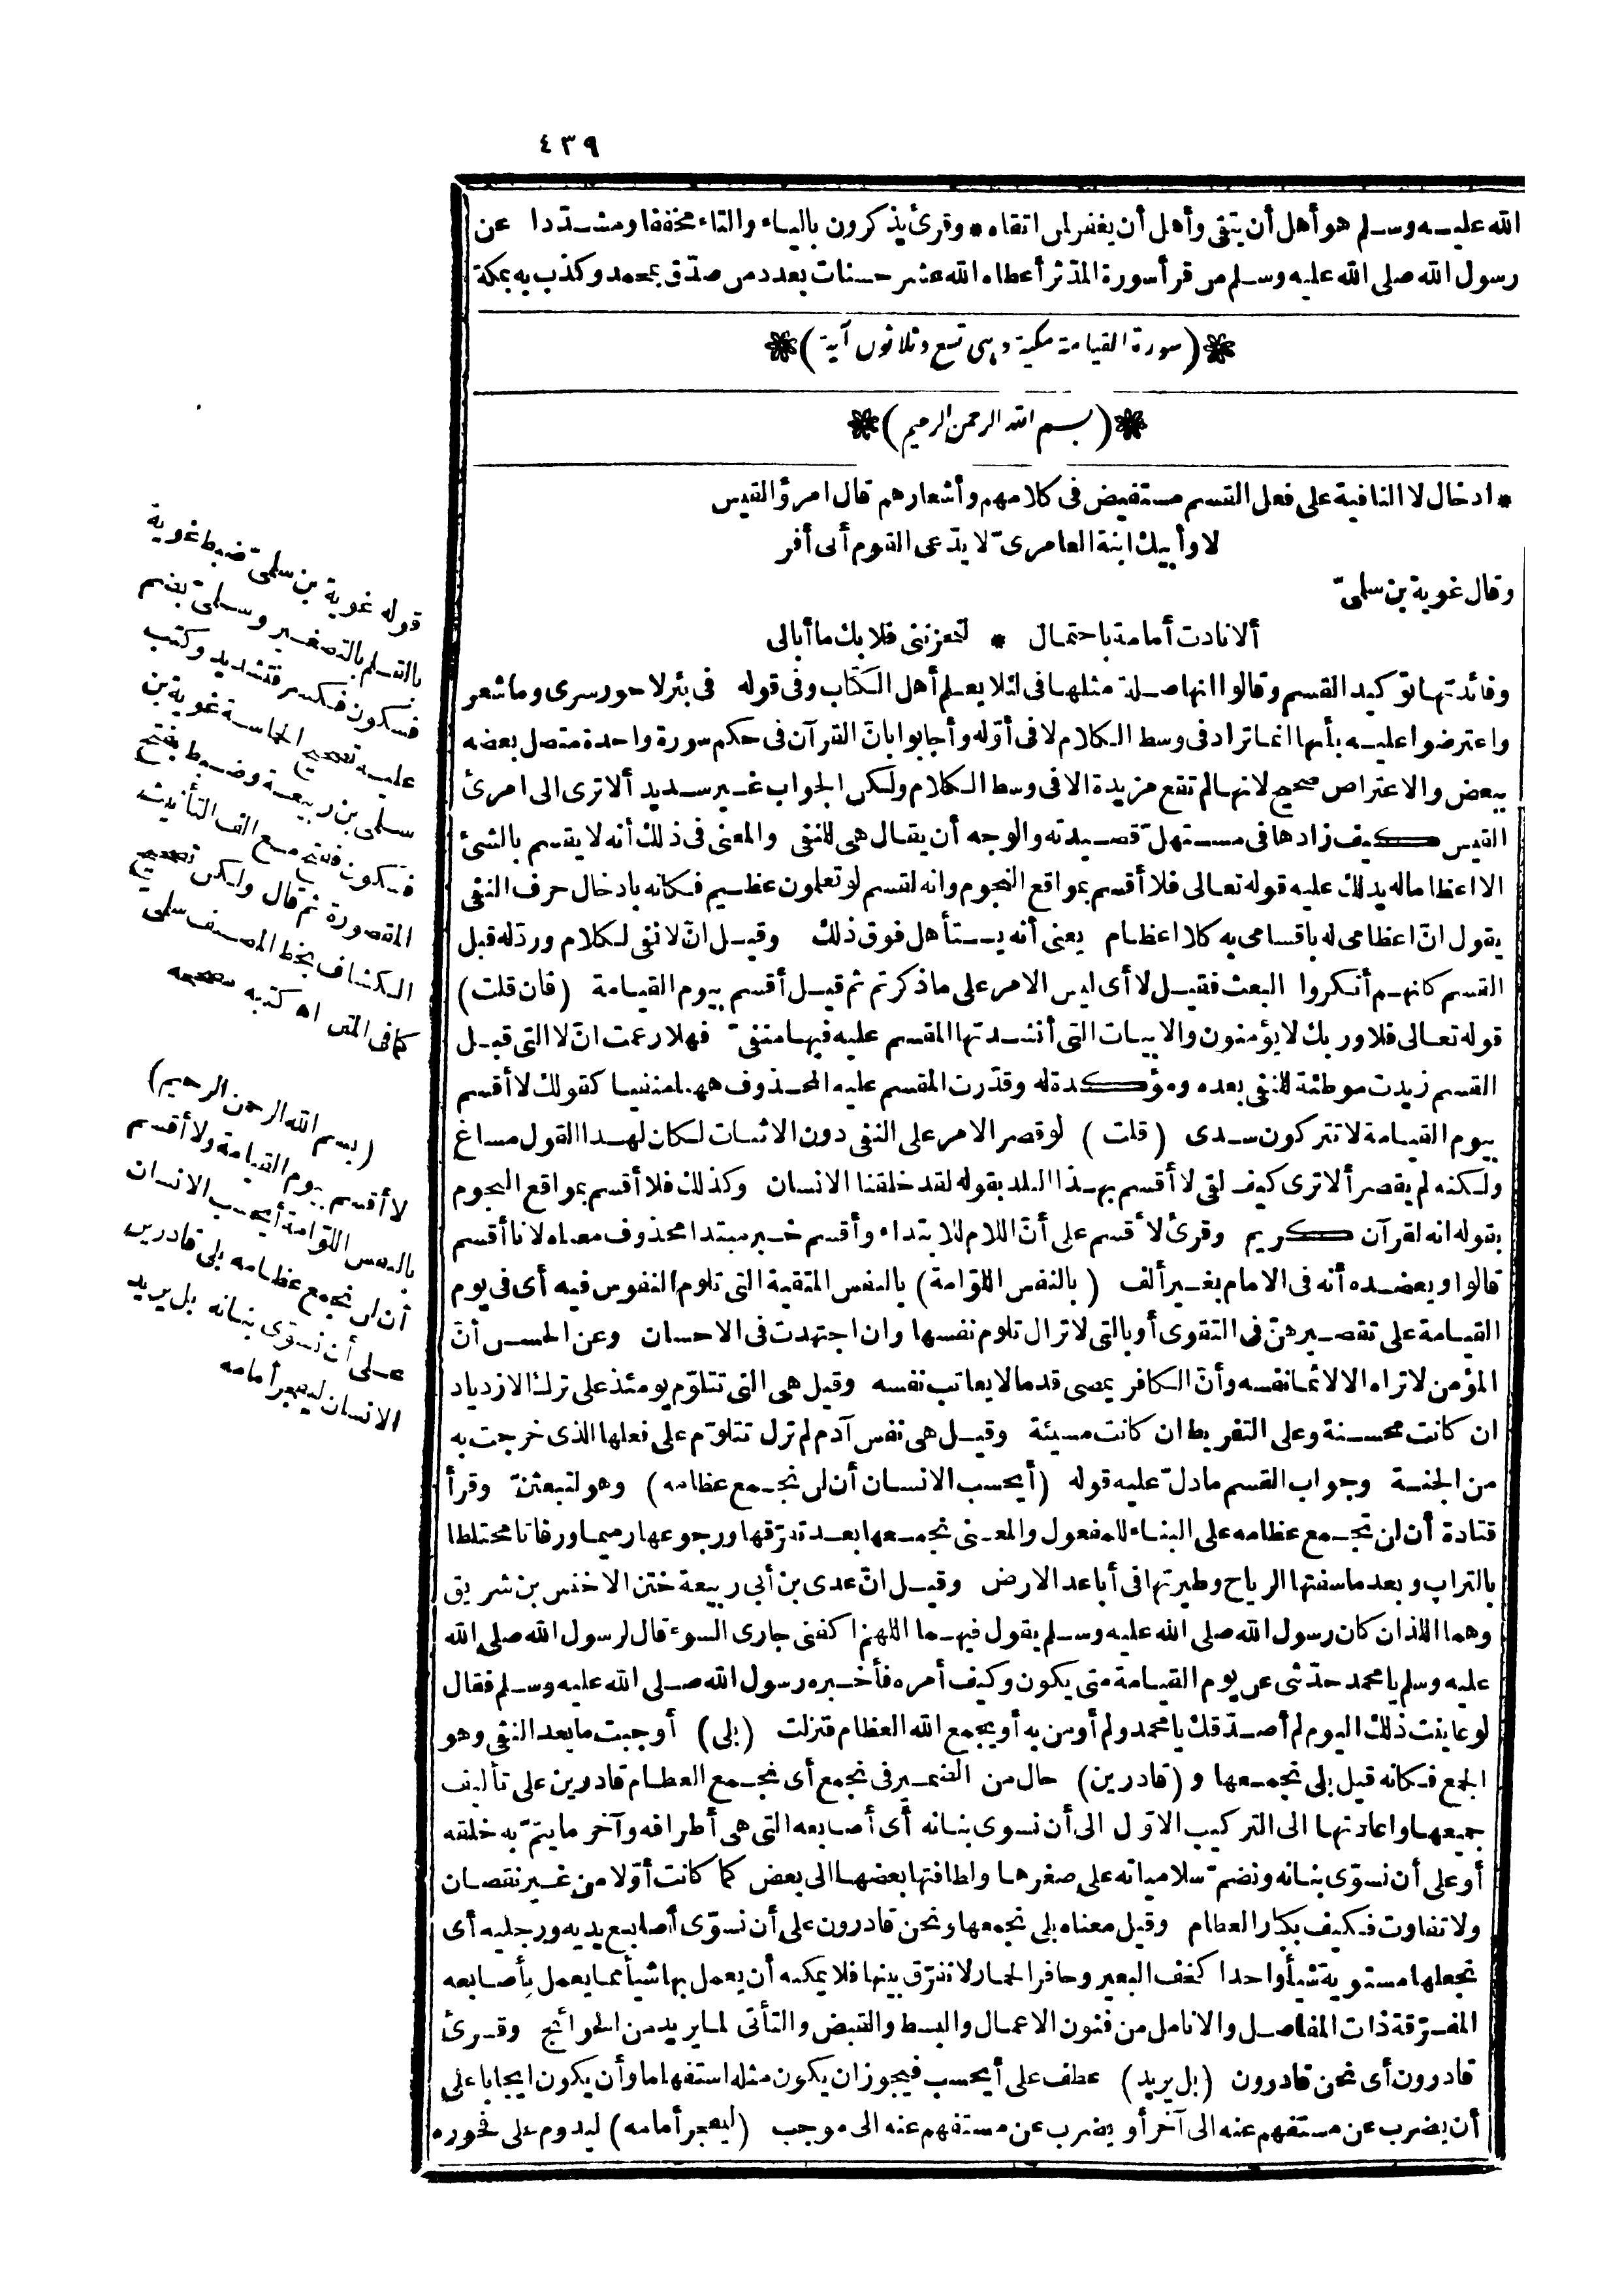 ٤٣٩
الله عليه وسلم هو أهل أن يتقى وأهل أن يغفر لمن اتقاه * وقرئ يذكرون بالياء والتاء مخففا ومشدّدا عن
رسول الله صلى الله عليه وسلم من قرأ سورة المدّثر أعطاه الله عشر حسنات بعدد من صدّق بمحمد وكذب به بمكة
(سورة القيامة مكية وهى تسع وثلاثون آية)
(بسم الله الرحمن الرحيم)
* ادخال لا النافية على فعل القسم مستفيض فى كلامهم وأشعارهم قال امرؤ القيس
لا وأبيك ابنة العامرىّ لا يدّعى القوم أنى أفر
وقال غوية بن سلمىّ
ألا نادت أمامة باحتمال * لتحزننى فلا بك ما أبالى
وفائدتها توكيد القسم وقالوا انها صلة مثلها فى لئلا يعلم أهل الكتاب وفى قوله فى بئر لا حور سرى وما شعر
واعترضوا عليه بأنها انما تزاد فى وسط الكلام لا فى أوّله وأجابوا بانّ القرآن فى حكم سورة واحدة متصل بعضه
ببعض والاعتراض صحيح لانها لم تقع مزيدة الا فى وسط الكلام ولكن الجواب غير سديد ألا ترى الى امرئ
القيس كيف زادها فى مستهلّ قصيدته والوجه أن يقال هى للنفى والمعنى فى ذلك أنه لا يقسم بالشئ
الا اعظاما له يدلك عليه قوله تعالى فلا أقسم بمواقع النجوم وانه لقسم لو تعلمون عظيم فكانه بادخال حرف النفى
يقول انّ اعظامى له باقسامى به كلا اعظام يعنى أنه يستأهل فوق ذلك وقيل انّ لا نفى لكلام وردّ له قبل
القسم كانهم أنكروا البعث فقيل لا أى ليس الامر على ما ذكرتم ثم قيل أقسم بيوم القيامة (فان قلت)
قوله تعالى فلا وربك لا يؤمنون والابيات التى أنشدتها المقسم عليه فيها منفىّ فهلا زعمت انّ لا التى قبل
القسم زيدت موطئة للنفى بعده ومؤكدة له وقدّرت المقسم عليه المحذوف ههنا منفيا كقولك لا أقسم
بيوم القيامة لا تتركون سدى (قلت) لو قصر الامر على النفى دون الاثبات لكان لهذا القول مساغ
ولكنه لم يقصر ألا ترى كيف لقى لا أقسم بهذا البلد بقوله لقد خلقنا الانسان وكذلك فلا أقسم بمواقع النجوم
بقوله انه لقرآن كريم وقرئ لأقسم على أنّ اللام للابتداء وأقسم خبر مبتدا محذوف معناه لانا أقسم
قالوا ويعضده أنه فى الامام بغير ألف (بالنفس اللوّامة) بالنفس المتقية التى تلوم النفوس فيه أى فى يوم
القيامة على تقصيرهنّ فى التقوى أو بالتى لا تزال تلوم نفسها وان اجتهدت فى الاحسان وعن الحسن انّ
المؤمن لا تراه الا لائما نفسه وأنّ الكافر يمضى قدما لا يعاتب نفسه وقيل هى التى تتلوّم يومئذ على ترك الازدياد
ان كانت محسنة وعلى التفريط ان كانت مسيئة وقيل هى نفس آدم لم تزل تتلوّم على فعلها الذى خرجت به
من الجنة وجواب القسم ما دلّ عليه قوله (أيحسب الانسان أن لن نجمع عظامه) وهو لتبعثنّ وقرأ
قتادة أن لن تجمع عظامه على البناء للمفعول والمعنى نجمعها بعد تفرّقها ورجوعها رميما ورفاتا مختلطا
بالتراب وبعد ما سفتها الرياح وطيرتها فى أباعد الارض وقيل انّ عدى بن أبى ربيعة ختن الاخنس بن شريق
وهما اللذان كان رسول الله صلى الله عليه وسلم يقول فيهما اللهمّ اكفنى جارى السوء قال لرسول الله صلى الله
عليه وسلم يا محمد حدّثنى عن يوم القيامة متى يكون وكيف أمره فأخبره رسول الله صلى الله عليه وسلم فقال
لو عاينت ذلك اليوم لم أصدّقك يا محمد ولم أومن به أو يجمع الله العظام فنزلت (بلى) أوجبت ما بعد النفى وهو
الجمع فكانه قيل بلى نجمعها و (قادرين) حال من الضمير فى نجمع أى نجمع العظام قادرين على تأليف
جميعها واعادتها الى التركيب الاوّل الى أن نسوى بنانه أى أصابعه التى هى أطرافه وآخر ما يتمّ به خلقه
أو على أن نسوّى بنانه ونضمّ سلامياته على صغرها ولطافتها بعضها الى بعض كما كانت أوّلا من غير نقصان
ولا تفاوت فكيف بكبار العظام وقيل معناه بلى نجمعها ونحن قادرون على أن نسوّى أصابع يديه ورجليه أى
نجعلها مستوية شيأ واحدا كخف البعير وحافر الحمار لا نفرّق بينها فلا يمكنه أن يعمل بها شيأ مما يعمل بأصابعه
المفرّقة ذات المفاصل والانامل من فنون الاعمال والبسط والقبض والتأتى لما يريد من الحوائج وقرئ
قادرون أى نحن قادرون (بل يريد) عطف على أيحسب فيجوز ان يكون مثله استفهاما وأن يكون ايجابا على
أن يضرب عن مستفهم عنه الى آخر أو يضرب عن مستفهم عنه الى موجب (ليفجر أمامه) ليدوم على فجوره
قوله غوية بن سلمىّ ضبط غوية
بالقلم بالتصغير وسلمىّ بضم
فسكون فكسر فتشديد وكتب
عليه تصحيح الحماسة غوية بن
سلمى بن ربيعة وضبط بفتح
فسكون ففتح مع الف التأنيث
المقصورة ثم قال ولكن تصحيح
الكشاف بخط المصنف سلمى
كما فى المتن اه كتبه مصححه
(بسم الله الرحمن الرحيم)
لا أقسم بيوم القيامة ولا أقسم
بالنفس اللوّامة أيحسب الانسان
أن لن نجمع عظامه بلى قادرين
على أن نسوّى بنانه بل يريد
الانسان ليفجر أمامه